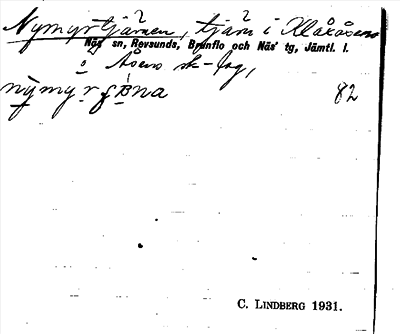 Nymyrtjärnen, tjärn i Klåxåsens
Näs sn, Revsunds, Brunflo och Näs' tg, Jämtl. l.
o Åsens sk-lag,
82
C. LINDBERG 1931.